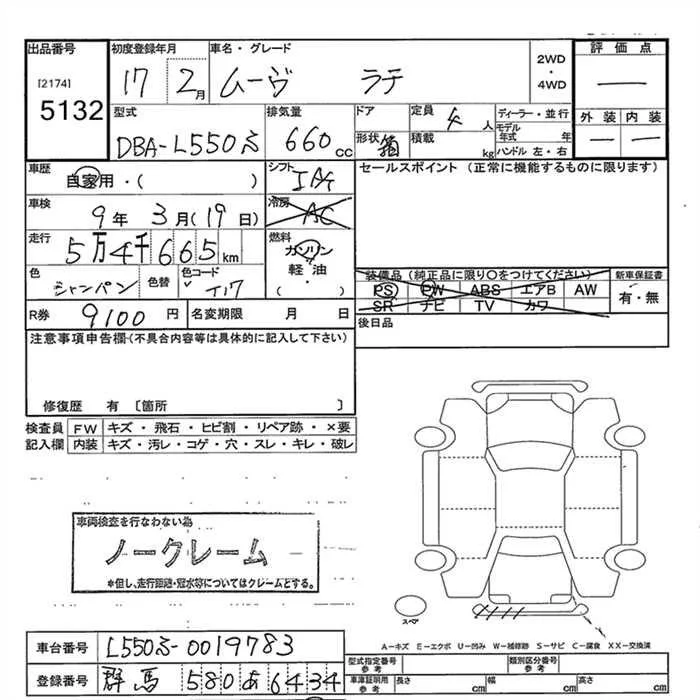 出品番号 初度登録年月 車名・グレード 2WD・4WD 評価点
[2174] 17 2月 ムーヴ ラテ ー
5132 型式 排気量 ドア 定員 4人 ディーラー・並行 外装 内装
DBA-L550S 660cc 形状 箱 積載 kg モデル年式 年 ハンドル 左・右 ー ー
車歴 自家用・( ) シフト IAT セールスポイント (正常に機能するものに限ります)
車検 9年3月(19日) 冷房 AC
走行 5万4千665km 燃料 ガソリン
軽油
( )
色 シャンパン 色替 色コード T17 装備品(純正品に限り○をつけてください) 新車保証書
PS PW ABS エアB AW 有・無
SR ナビ TV カワ
R券 9100円 名変期限 月 日 後日品
注意事項申告欄(不具合内容等は具体的に記入して下さい)
修復歴 有 〔箇所 〕
検査員 FW キズ・飛石・ヒビ割・リペア跡・×要
記入欄 内装 キズ・汚レ・コゲ・穴・スレ・キレ・破レ
車両検査を行なわない為
ノークレーム
*但し、走行距離・冠水等についてはクレームとする。
スペア
A-キズ E-エクボ U-凹み W-補修跡 S-サビ C-腐食 XX-交換済
車台番号 L550S-0019783
登録番号 群馬 580 あ 6434
型式指定番号 参考 類別区分番号 参考
車庫証明用 参考 長さ cm 幅 cm 高さ cm